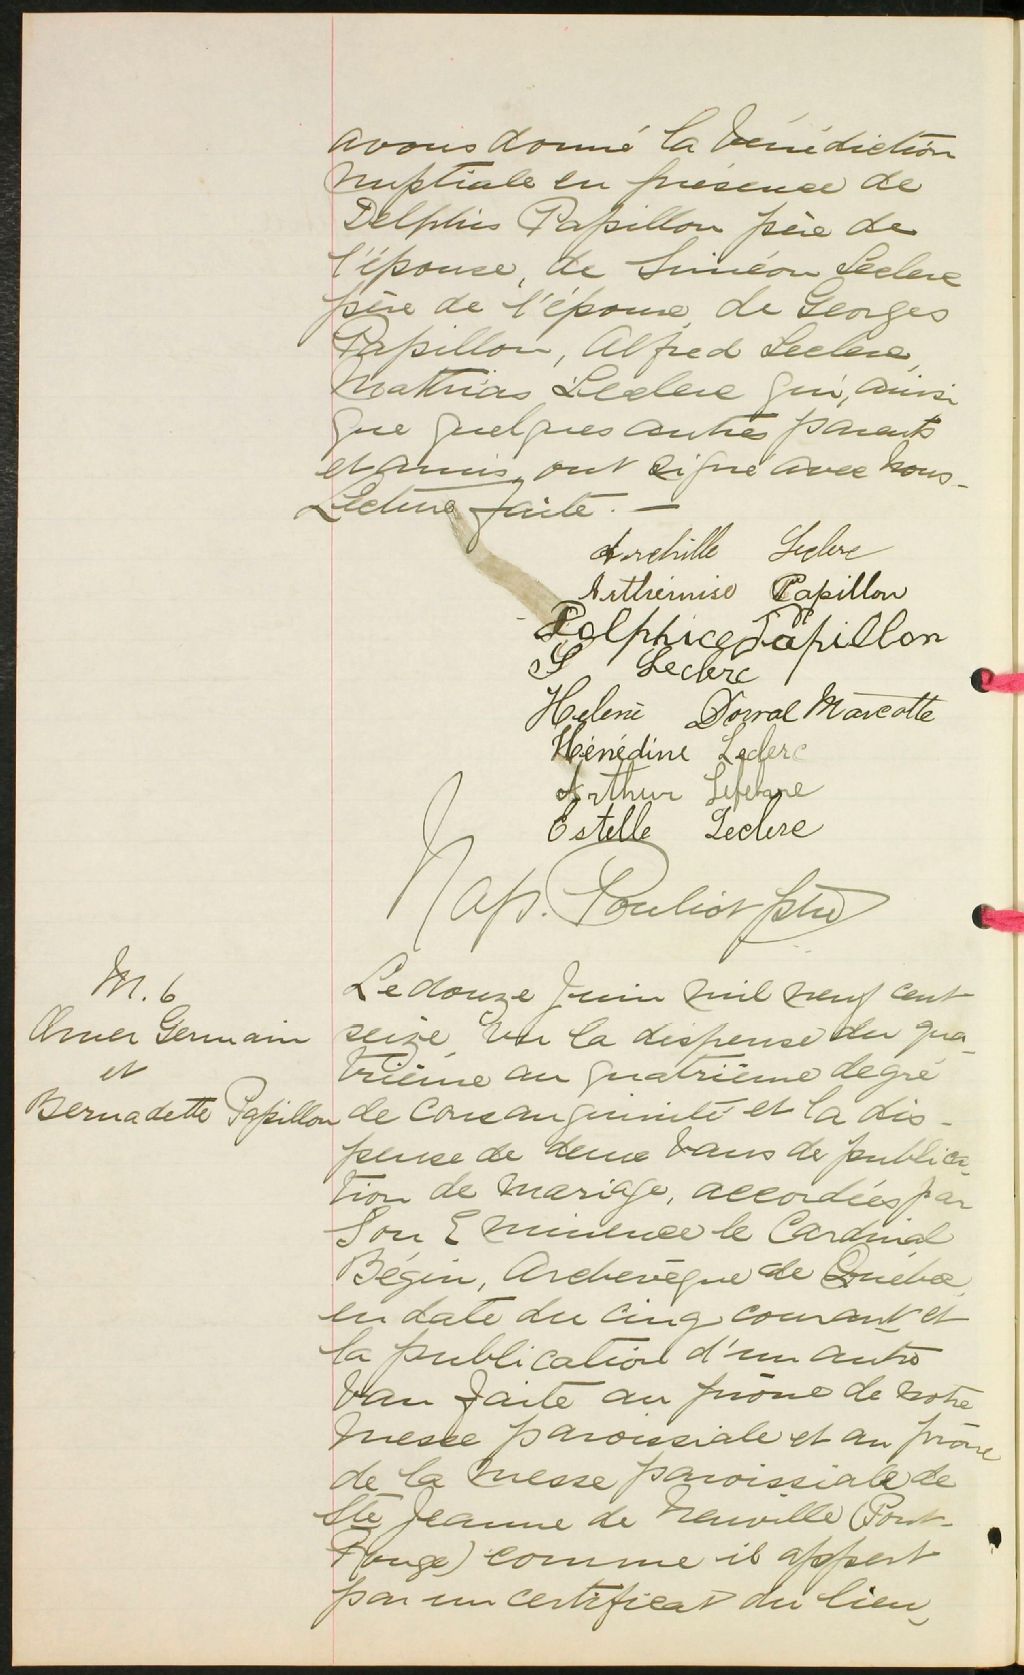 avons donné la bénédiction
nuptiale en présence de
Delphis Papillon père de
l'épouse, de Siméon Leclerc
père de l'époux, de Georges
Papillon, Alfred Leclerc,
Mathias Leclerc qui, ainsi
que quelques autres parents
et amis, ont signé avec nous-
Lecture faite. —
Archille Leclerc
Arthémise Papillon
Dolphice Papillon
S Leclerc
Helenè Dorval Marcotte
Hénédine Leclerc
Arthur Lefebvre
Estelle Leclerc
Nap. Pouliot ptre
M. 6
Omer Germain
et
Bernadette Papillon
Le douze Juin mil neuf cent
seize, Vu la dispense du qua-
trième au quatrième degré
de consanguinité et la dis-
pense de deux bans de publica-
tion de mariage, accordées par
Son Eminence le Cardinal
Bégin, Archevêque de Québec,
en date du cinq courant et
la publication d'un autre
ban faite au prône de notre
messe paroissiale et au prône
de la messe paroissiale de
Ste Jeanne de Neuville (Pont-
Rouge) comme il appert
par un certificat du lieu,